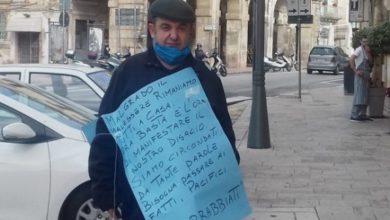 MALGRADO IL
MALESSERE RIMANIAMO
TUTTI A CASA
ORA BASTA E L'ORA
DI MANIFESTARE IL
NOSTRO DISAGIO
SIAMO CIRCONDATI
DA TANTE PAROLE
BISOGNA PASSARE AI
FATTI PACIFICI
ARRABBIATI